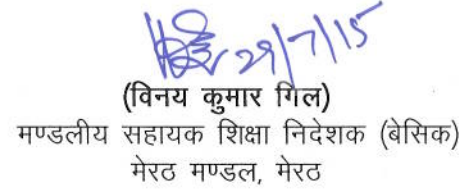 29/7/15
(विनय कुमार गिल)
मण्डलीय सहायक शिक्षा निदेशक (बेसिक)
मेरठ मण्डल, मेरठ